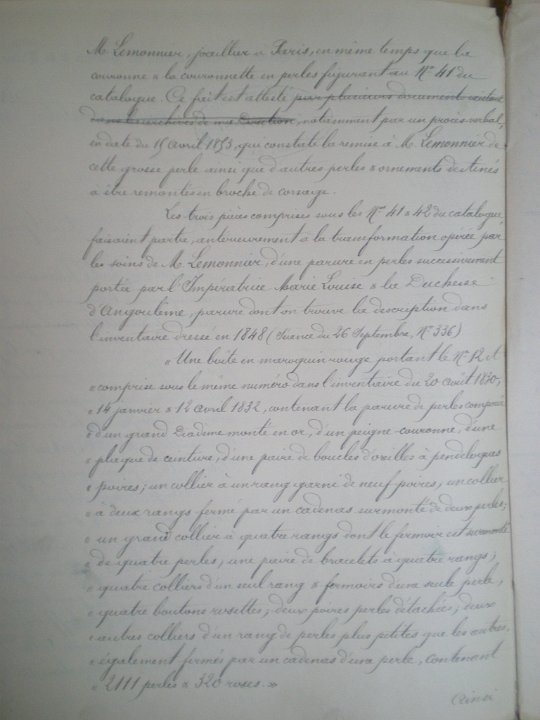 M. Lemonnier, joaillier à Paris, en même temps que la
couronne & la couronnette en perles figurant au N° 41 du
catalogue. Ce fait est attesté par plusieurs documents
dans les archives de ma Direction, notamment par un procès-verbal,
en date du 15 avril 1853, qui constate la remise à M. Lemonnier de
cette grosse perle ainsi que d'autres perles & ornements destinés
à être remontés en broche de corsage.
Les trois pièces comprises sous les N° 41 & 42 du catalogue,
faisaient partie, antérieurement à la transformation opérée par
les soins de M. Lemonnier, d'une parure en perles successivement
portée par l'Impératrice Marie Louise & la Duchesse
d'Angoulême, parure dont on trouve la description dans
l'inventaire dressé en 1848 (Séance du 26 Septembre, N° 336)
« Une boîte en maroquin rouge portant le N° 12 et
« comprise sous le même numéro dans l'inventaire du 20 août 1830,
« 14 janvier & 12 avril 1832, contenant la parure de perles composée
« d'un grand Diadème monté en or, d'un peigne-couronne, d'une
« plaque de ceinture, d'une paire de boucles d'oreilles à pendeloques
« poires; un collier à un rang garni de neuf poires; un collier
« à deux rangs fermé par un cadenas surmonté de deux perles;
« un grand collier à quatre rangs dont le fermoir est surmonté
« de quatre perles; une paire de bracelets à quatre rangs;
« quatre colliers d'un seul rang & fermoirs d'une seule perle,
« quatre boutons rosettes; deux poires perles détachées; deux
« autres colliers d'un rang de perles plus petites que les autres,
« également fermés par un cadenas d'une perle, contenant
« 2111 perles & 320 roses. »
Ainsi